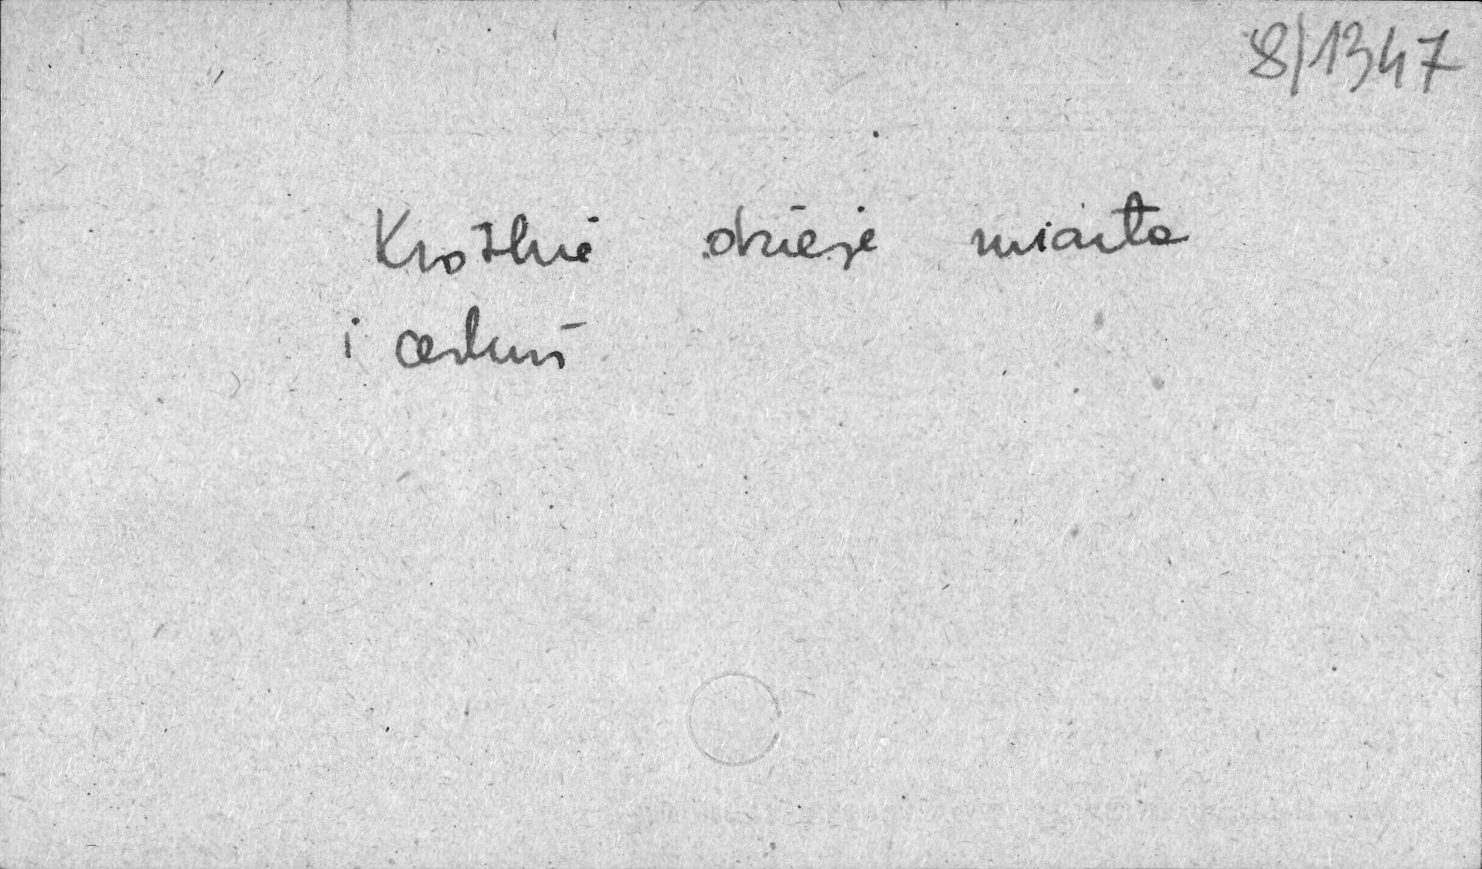 8/1347
Krótkie dzieje miasta
i